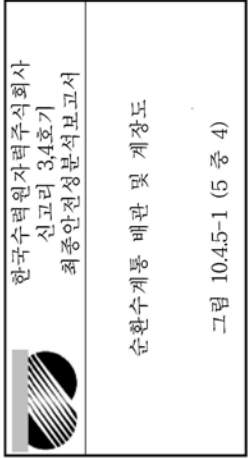 한국수력원자력주식회사
신고리 3,4호기
최종안전성분석보고서
순환수계통 배관 및 계장도
그림 10.4.5-1 (5 중 4)